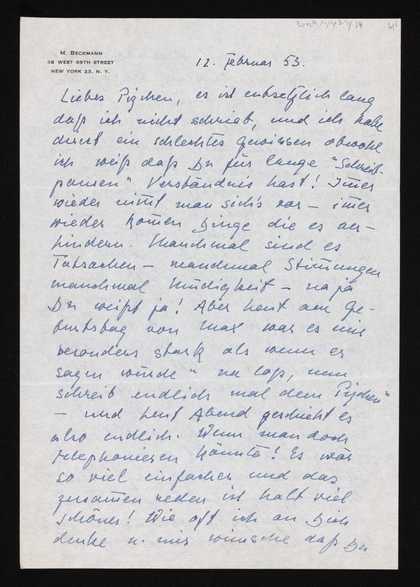 M. BECKMANN
38 WEST 69TH STREET
NEW YORK 23, N. Y.
12. Februar 53.
Liebes Pizchen, es ist entsetzlich lang
daß ich nicht schrieb, und ich hatte
direct ein schlechtes Gewissen obwohl
ich weiß daß Du für lange "Schreib-
pausen" Verständnis hast! Im̄er
wieder nim̄t man sich's vor – im̄er
wieder kom̄en Dinge die es ver-
hindern. Manchmal sind es
Tatsachen – manchmal Stim̄ungen
manchmal Müdigkeit – na ja
Du weißt ja! Aber heut am Ge-
burtstag von Max war es mir
besonders stark als wenn er
sagen würde "na los, nun
schreib endlich mal dem Pizchen"
– und heut Abend geschieht es
also endlich. Wenn man doch
telephonieren könnte! Es wär
so viel einfacher und das
zusam̄en reden ist halt viel
schöner! Wie oft ich an Dich
denke u. mir wünsche daß Du